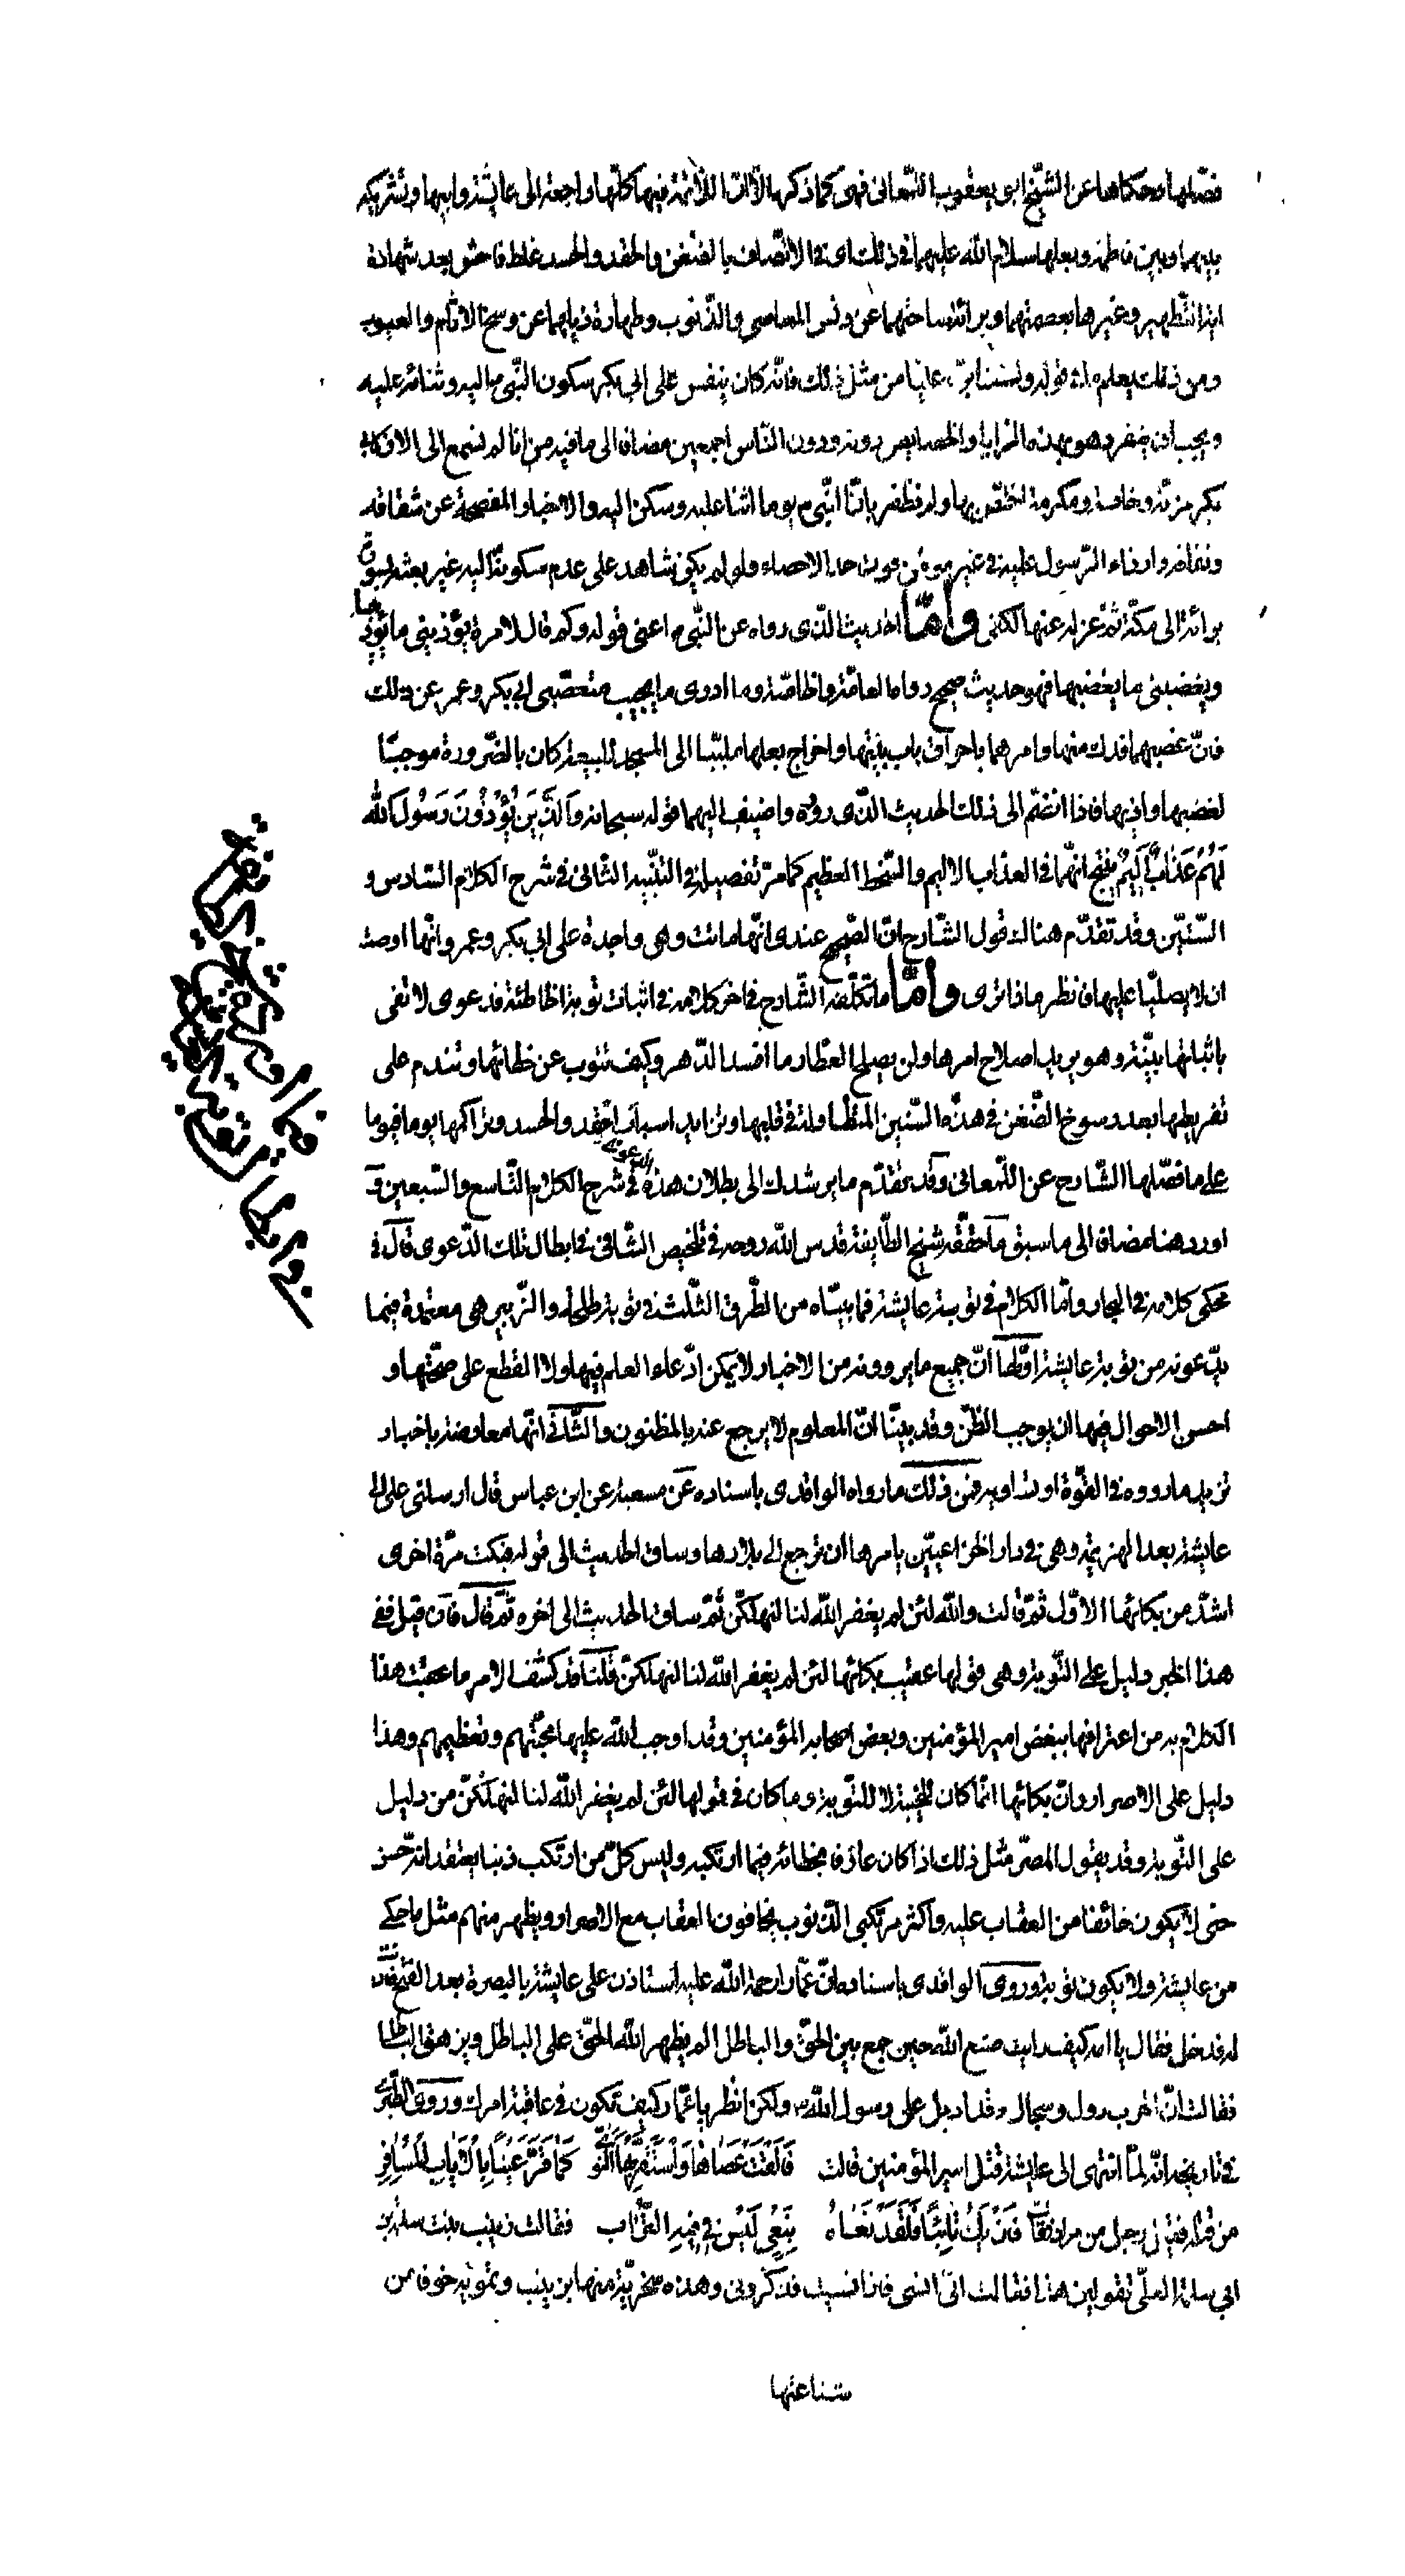 فصّلها وحكاها عن الشّيخ ابى يعقوب اللّمعانى فهى كما ذكرها الّا انّ اللّائمة فيها كلّها راجعة الى عايشة وابيها وتشريكه
بينهما وبين فاطمة وبعلها سلام الله عليهما فى ذلك اى فى الاتّصاف بالضّغن والحقد والحسد غلط فاحش بعد شهادة
اية التّطهير وغيرها بعصمتهما وبرائة ساحتهما عن دنس المعاصى والذّنوب وطهارة ذيلهما عن وسخ الاثام والعيوب
ومن ذلك يعلم ما فى قوله ولست ابرّء عليّا من مثل ذلك فانّه كان ينفس على ابى بكر سكون النّبى ص اليه وثنائه عليه
ويحبّ ان ينفرد هو بهذه المزايا والخصايص دونه ودون النّاس اجمعين مضافا الى ما فيه من انّا لم نسمع الى الان لابى
بكر مزيّة وخاصة ومكرمة اختصّ بها ولم نظفر بانّ النّبى ص يوما اثنا عليه وسكن اليه والاخبار المفصحة عن شقاقه
ونفاقه وازراء الرّسول عليه فى غير موطن فوق حدّ الاحصاء ولو لم يكن شاهد على عدم سكونه اليه غير بعثه بسورة
برائة الى مكّة ثمّ عزله عنها لكفى وأمّا الحديث الّذى رواه عن النّبى ص اعنى قوله وكم قال لا مرة يؤذينى ما يؤذيها
ويغضبنى ما يغضبها فهو حديث صحيح رواه العامّة والخاصّة وما ادرى ما يجيب متعصّبى ابى بكر وعمر عن ذلك
فانّ غصبهما فدك منها وامرهما باحراق باب بيتها واخراج بعلها ملبّبا الى المسجد للبيعة كان بالضّرورة موجبا
لغضبها واذيها فاذا انضمّ الى ذلك الحديث الّذى رووه واضيف اليهما قوله سبحانه وَالَّذينَ يُؤْذُونَ رَسُولَ اللّهِ
لَهُمْ عَذابٌ أَليمٌ ينتج انّهما فى العذاب الاليم والسّخط العظيم كما مرّ تفصيله فى التنبيه الثّانى فى شرح الكلام السّادس و
السّتيّن وقد تقدّم هنالك قول الشّارح انّ الصّحيح عندى انّها ماتت وهى واجدة على ابى بكر وعمر وانّها اوصت
ان لا يصلّيا عليها فانظر ماذا ترى وأمّا ما تكلّفه الشّارح فى اخر كلامه فى اثبات توبة الخاطئة فدعوى لا تفى
باثباتها بيّنة وهو يريد اصلاح امرها ولن يصلح العطّار ما افسد الدّهر وكيف تتوب عن خطائها وتندم على
تفريطها بعد رسوخ الضّغن فى هذه السّنين المتطاولة فى قلبها وتزايد اسباب الحقد والحسد وتراكمها يوما فيوما
على ما فصّلها الشّارح عن اللّمعانى وقد تقدّم ما يرشدك الى بطلان هذه الدّعوى فى شرح الكلام التّاسع والسّبعين و
اورد هنا مضافا الى ما سبق ما حقّقه شيخ الطّايفة قدس الله روحه فى تلخيص الشّافى فى ابطال تلك الدّعوى قال فى
محكى كلامه فى البحار وامّا الكلام فى توبة عايشة فما بيّناه من الطّرق الثّلث فى توبة طلحة والزّبير هى معتمدة فيما
يدّعونه من توبة عايشة اوّلها انّ جميع ما يروونه من الاخبار لا يمكن ادّعاء العلم فيها ولا القطع على صحّتها و
احسن الاحوال فيها ان يوجب الظّن وقد بينّا انّ المعلوم لا يرجع عنه بالمظنون والثّانى انّها معارضة باخبار
تزيد ما رووه فى القوّة او تساويه فمن ذلك ما رواه الواقدى باسناده عن مسعبة عن ابن عباس قال ارسلنى على الى
عايشة بعد الهزيمة وهى فى دار الخزاعيّين يامرها ان ترجع الى بلادها وساق الحديث الى قوله فبكت مرّة اخرى
اشدّ من بكائها الاوّل ثمّ قالت والله لئن لم يغفر الله لنا لنهلكنّ ثمّ ساق الحديث الى اخره ثمّ قال فان قيل ففى
هذا الخبر دليل على التّوبة وهى قولها عقيب بكائها لئن لم يغفر الله لنا لنهلكنّ قلنا قد كشف الامر ما عقبت هذا
الكلام به من اعترافها ببغض امير المؤمنين وبغض اصحابه المؤمنين وقد اوجب الله عليها محبّتهم وتعظيمهم وهذا
دليل على الاصرار وانّ بكائها انّما كان للخيبة لا للتّوبة وما كان فى قولها لئن لم يغفر الله لنا لنهلكنّ من دليل
على التّوبة وقد يقول المصرّ مثل ذلك اذا كان عارفا بخطائه فيما ارتكبه وليس كلّ من ارتكب ذنبا يعتقد انّه حسن
حتى لا يكون خائفا من العقاب عليه واكثر مرتكبى الذّنوب يخافون العقاب مع الاصرار ويظهر منهم مثل ما حكى
من عايشة ولا يكون توبة وروى الواقدى باسناده انّ عمّارا رحمة الله عليه استاذن على عايشة بالبصرة بعد الفتح فاذنت
له فدخل فقال يا امه كيف رايت صنع الله حين جمع بين الحقّ والباطل الم يظهر الله الحقّ على الباطل ويزهق الباطل
فقالت انّ الحرب دول وسجال وقد اديل على رسول الله ص ولكن انظر يا عمّار كيف تكون فى عاقبة امرك وروى الطّبرى
فى تاريخه انّه لمّا انتهى الى عايشة قتل امير المؤمنين قالت فَأَلْقَتْ عَصاها وَاسْتَقَرَّ بِهَا النَّوى كَما قَرَّ عَيْنًا بِالْإِيابِ الْمُسافِرُ
من قتله فقيل رجل من مراد فقالت فَإِنْ يَكُ نائِيًا فَلَقَدْ نَعاهُ بِنَعْىٍ لَيْسَ فى فيهِ التُّرابُ فقالت زينب بنت سلمة بن
ابى سلمة العلىّ تقولين هذا فقالت انّى انسى فاذا نسيت فذكّرونى وهذه سخريّة منها بزينب وتمويه خوفا من
شناعتها